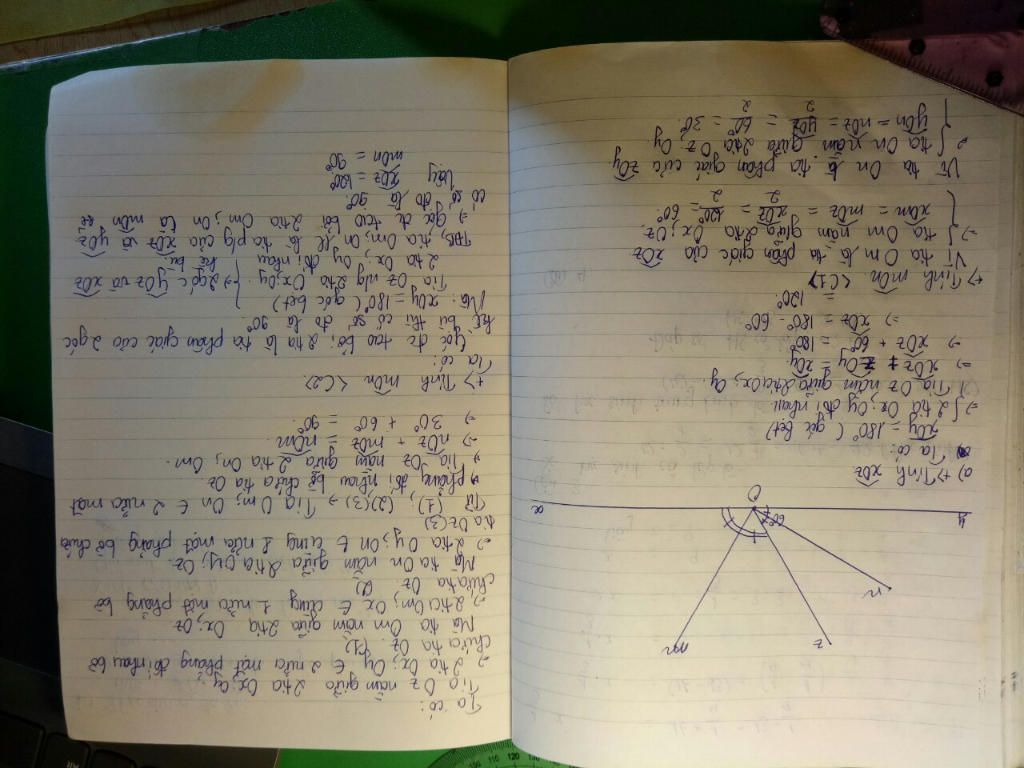 z
m
n
y
O
60°
x
a) +> Tính xOz
Ta có:
xOy = 180° (góc bẹt)
=> { 2 tia Ox; Oy đối nhau
Tia Oz nằm giữa 2 tia Ox; Oy
=> xOz + zOy = xOy
=> xOz + 60° = 180°
=> xOz = 180° - 60°
= 120°
+> Tính mOn <C1>
Vì tia Om là tia phân giác của xOz
=> { tia Om nằm giữa 2 tia Ox; Oz
xOm = mOz = xOz/2 = 120°/2 = 60°
Vì tia On là tia phân giác của zOy
=> { tia On nằm giữa 2 tia Oz Oy
yOn = nOz = yOz/2 = 60°/2 = 30°
Ta có:
Tia Oz nằm giữa 2 tia Ox; Oy
=> 2 tia Ox; Oy ∈ 2 nửa mặt phẳng đối nhau bờ
chứa tia Oz (1)
Mà tia Om nằm giữa 2 tia Ox; Oz
=> 2 tia Om; Ox ∈ cùng 1 nửa mặt phẳng bờ
chứa tia Oz (2)
Mà tia On nằm giữa 2 tia Oy; Oz
=> 2 tia Oy; On ∈ cùng 1 nửa mặt phẳng bờ chứa
tia Oz (3)
Từ (1); (2) (3) => Tia Om; On ∈ 2 nửa mặt
phẳng đối nhau bờ chứa tia Oz
=> Tia Oz nằm giữa 2 tia On; Om
=> nOz + mOz = mOn
=> 30° + 60° = 90°
+> Tính mOn <C2>
Ta có:
Góc đc tạo bởi 2 tia là tia phân giác của 2 góc
kề bù thì có số đo là 90°
Mà: xOy = 180° (góc bẹt)
Tia Oz n/g 2 tia Ox; Oy } => 2 góc yOz và xOz
2 tia Ox; Oy đối nhau kề bù
tia Om; On là tia p/g của xOz và yOz
=> góc đc tạo bởi 2 tia Om; On là mOn
có số đo là 90°
Vậy xOz = 120°
mOn = 90°